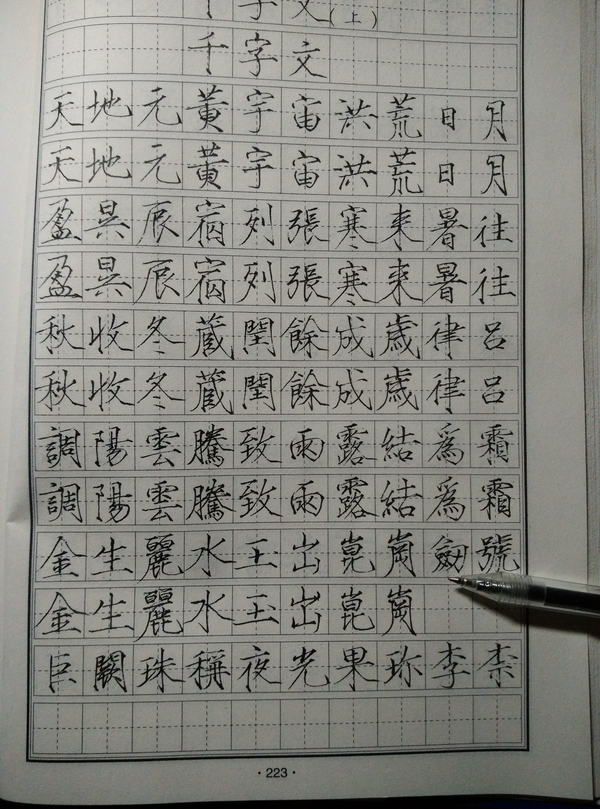 千字文(上)
千字文
天地元黃宇宙洪荒日月
天地元黃宇宙洪荒日月
盈昃辰宿列張寒來暑往
盈昃辰宿列張寒來暑往
秋收冬蔵閏餘成歲律呂
秋收冬蔵閏餘成歲律呂
調陽雲騰致雨露結爲霜
調陽雲騰致雨露結爲霜
金生麗水玉出崑崗劍號
金生麗水玉出崑崗
巨闕珠稱夜光果珎李柰
·223·